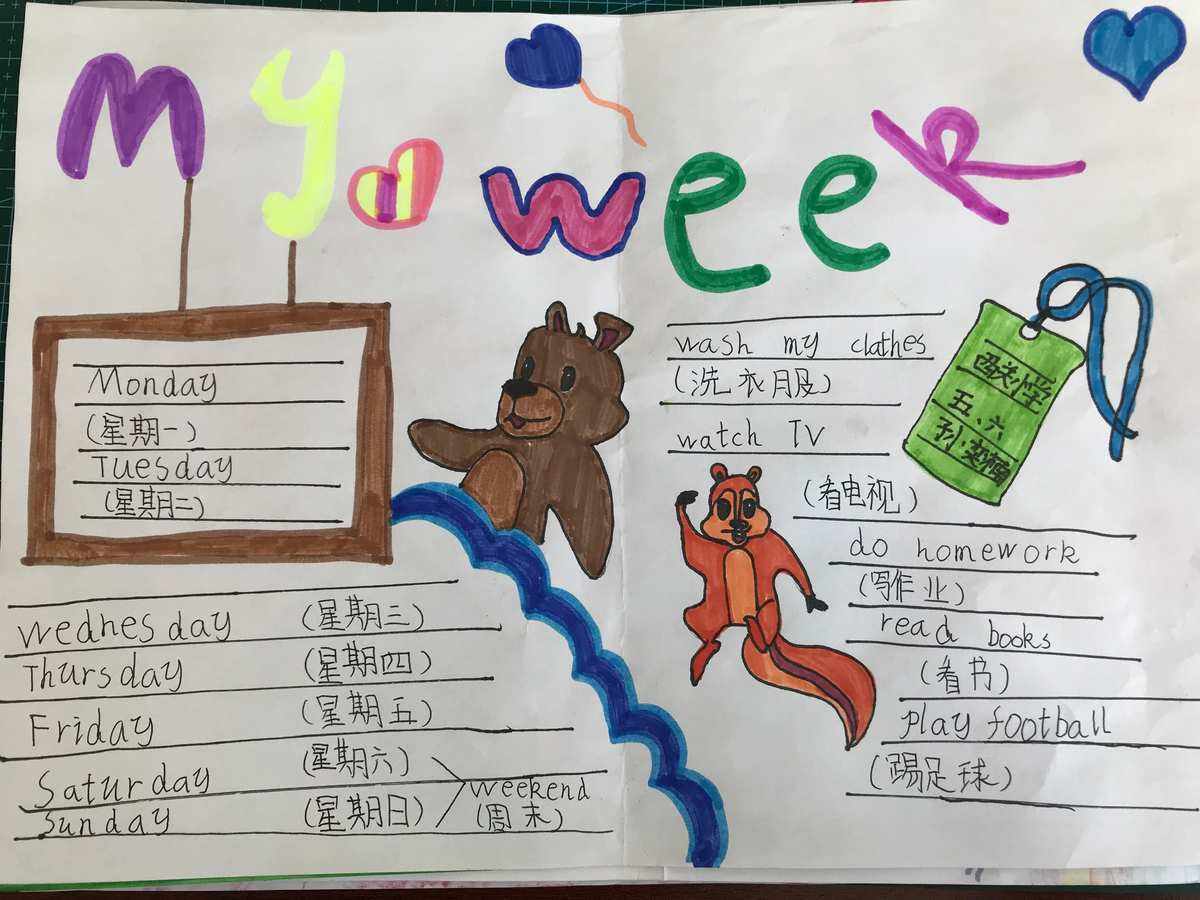 My week
Monday
(星期一)
Tuesday
(星期二)
Wednesday (星期三)
Thursday (星期四)
Friday (星期五)
Saturday (星期六)
Sunday (星期日)
weekend
(周末)
wash my clothes
(洗衣服)
watch TV
(看电视)
do homework
(写作业)
read books
(看书)
play football
(踢足球)
五、六